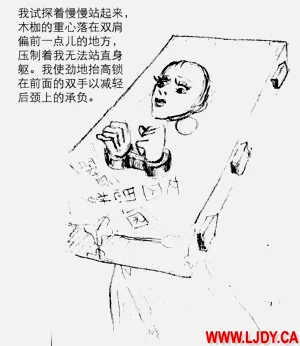 我试探着慢慢站起来，
木枷的重心落在双肩
偏前一点儿的地方，
压制着我无法站直身
躯。我使劲地抬高锁
在前面的双手以减轻
后颈上的承负。
WWW.LJDY.CA